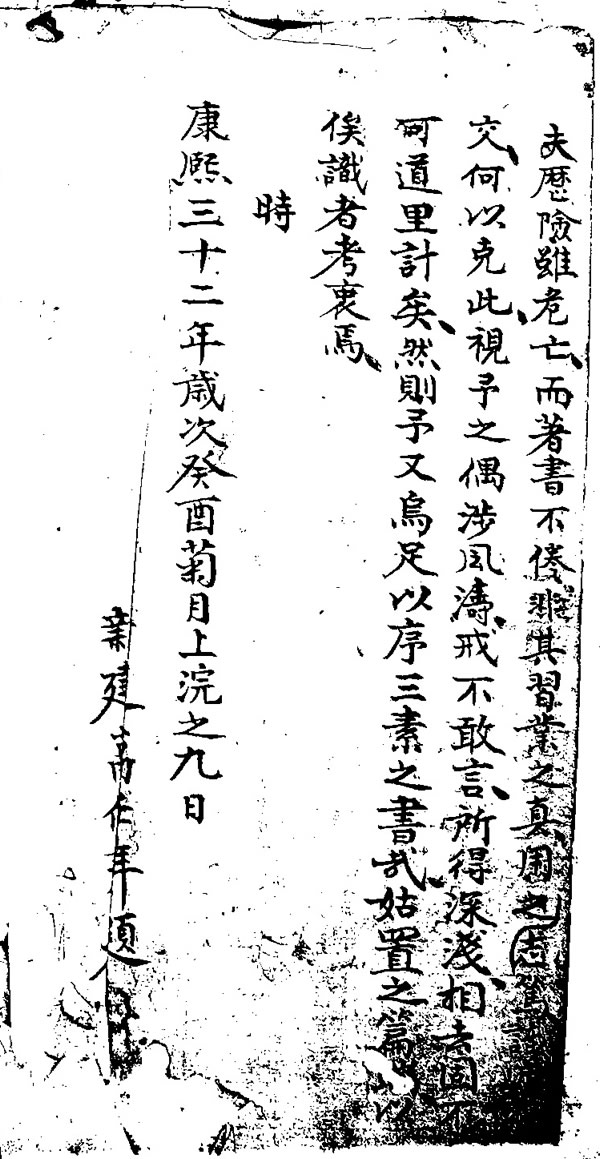 夫歷險雖危亡、而著書不倦、非其習業之真、用志篤
交、何以克此、視予之偶涉風濤、戒不敢言、所得深淺、相去固不
可道里計矣、然則予又烏足以序三素之書哉、姑置之篇以
俟識者考衷焉、
時
康熙三十二年歲次癸酉菊月上浣之九日
建